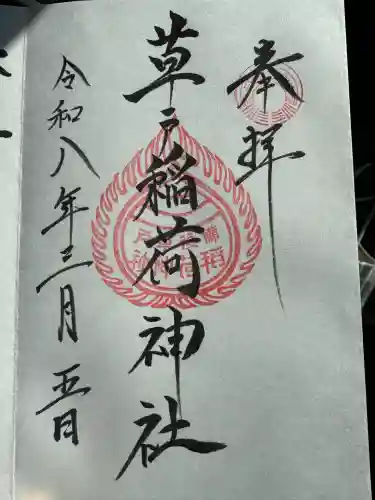 奉拝
草戸稲荷神社
令和八年三月五日